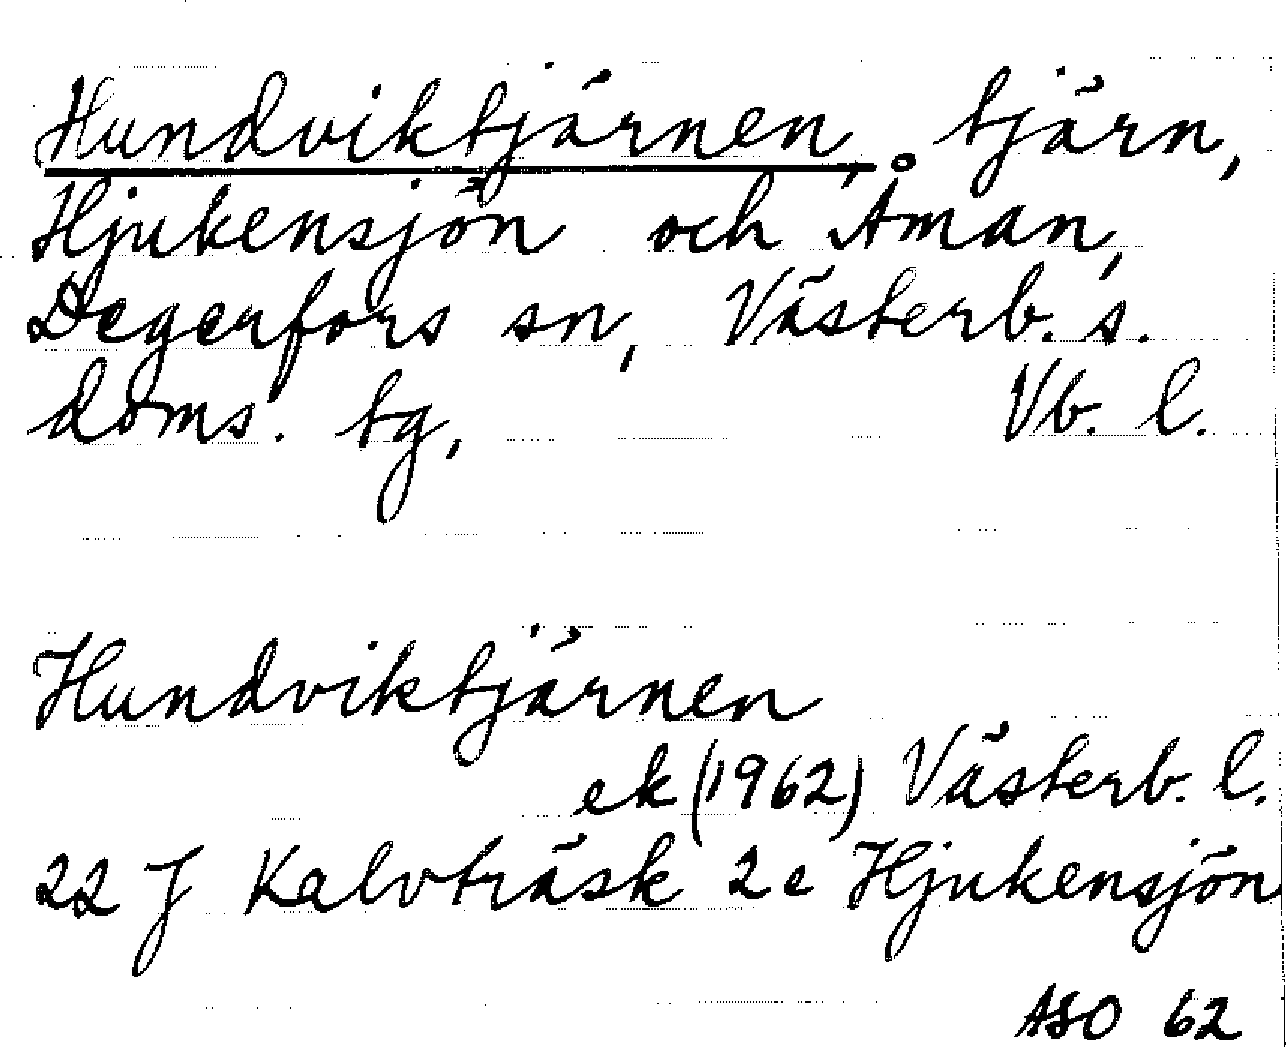 Hundviktjärnen, tjärn,
Hjukensjön och Åman,
Degerfors sn, Västerb. s.
doms. tg, Vb. l.
Hundviktjärnen
ek (1962) Västerb. l.
22 J Kalvträsk 2e Hjukensjön
ASO 62